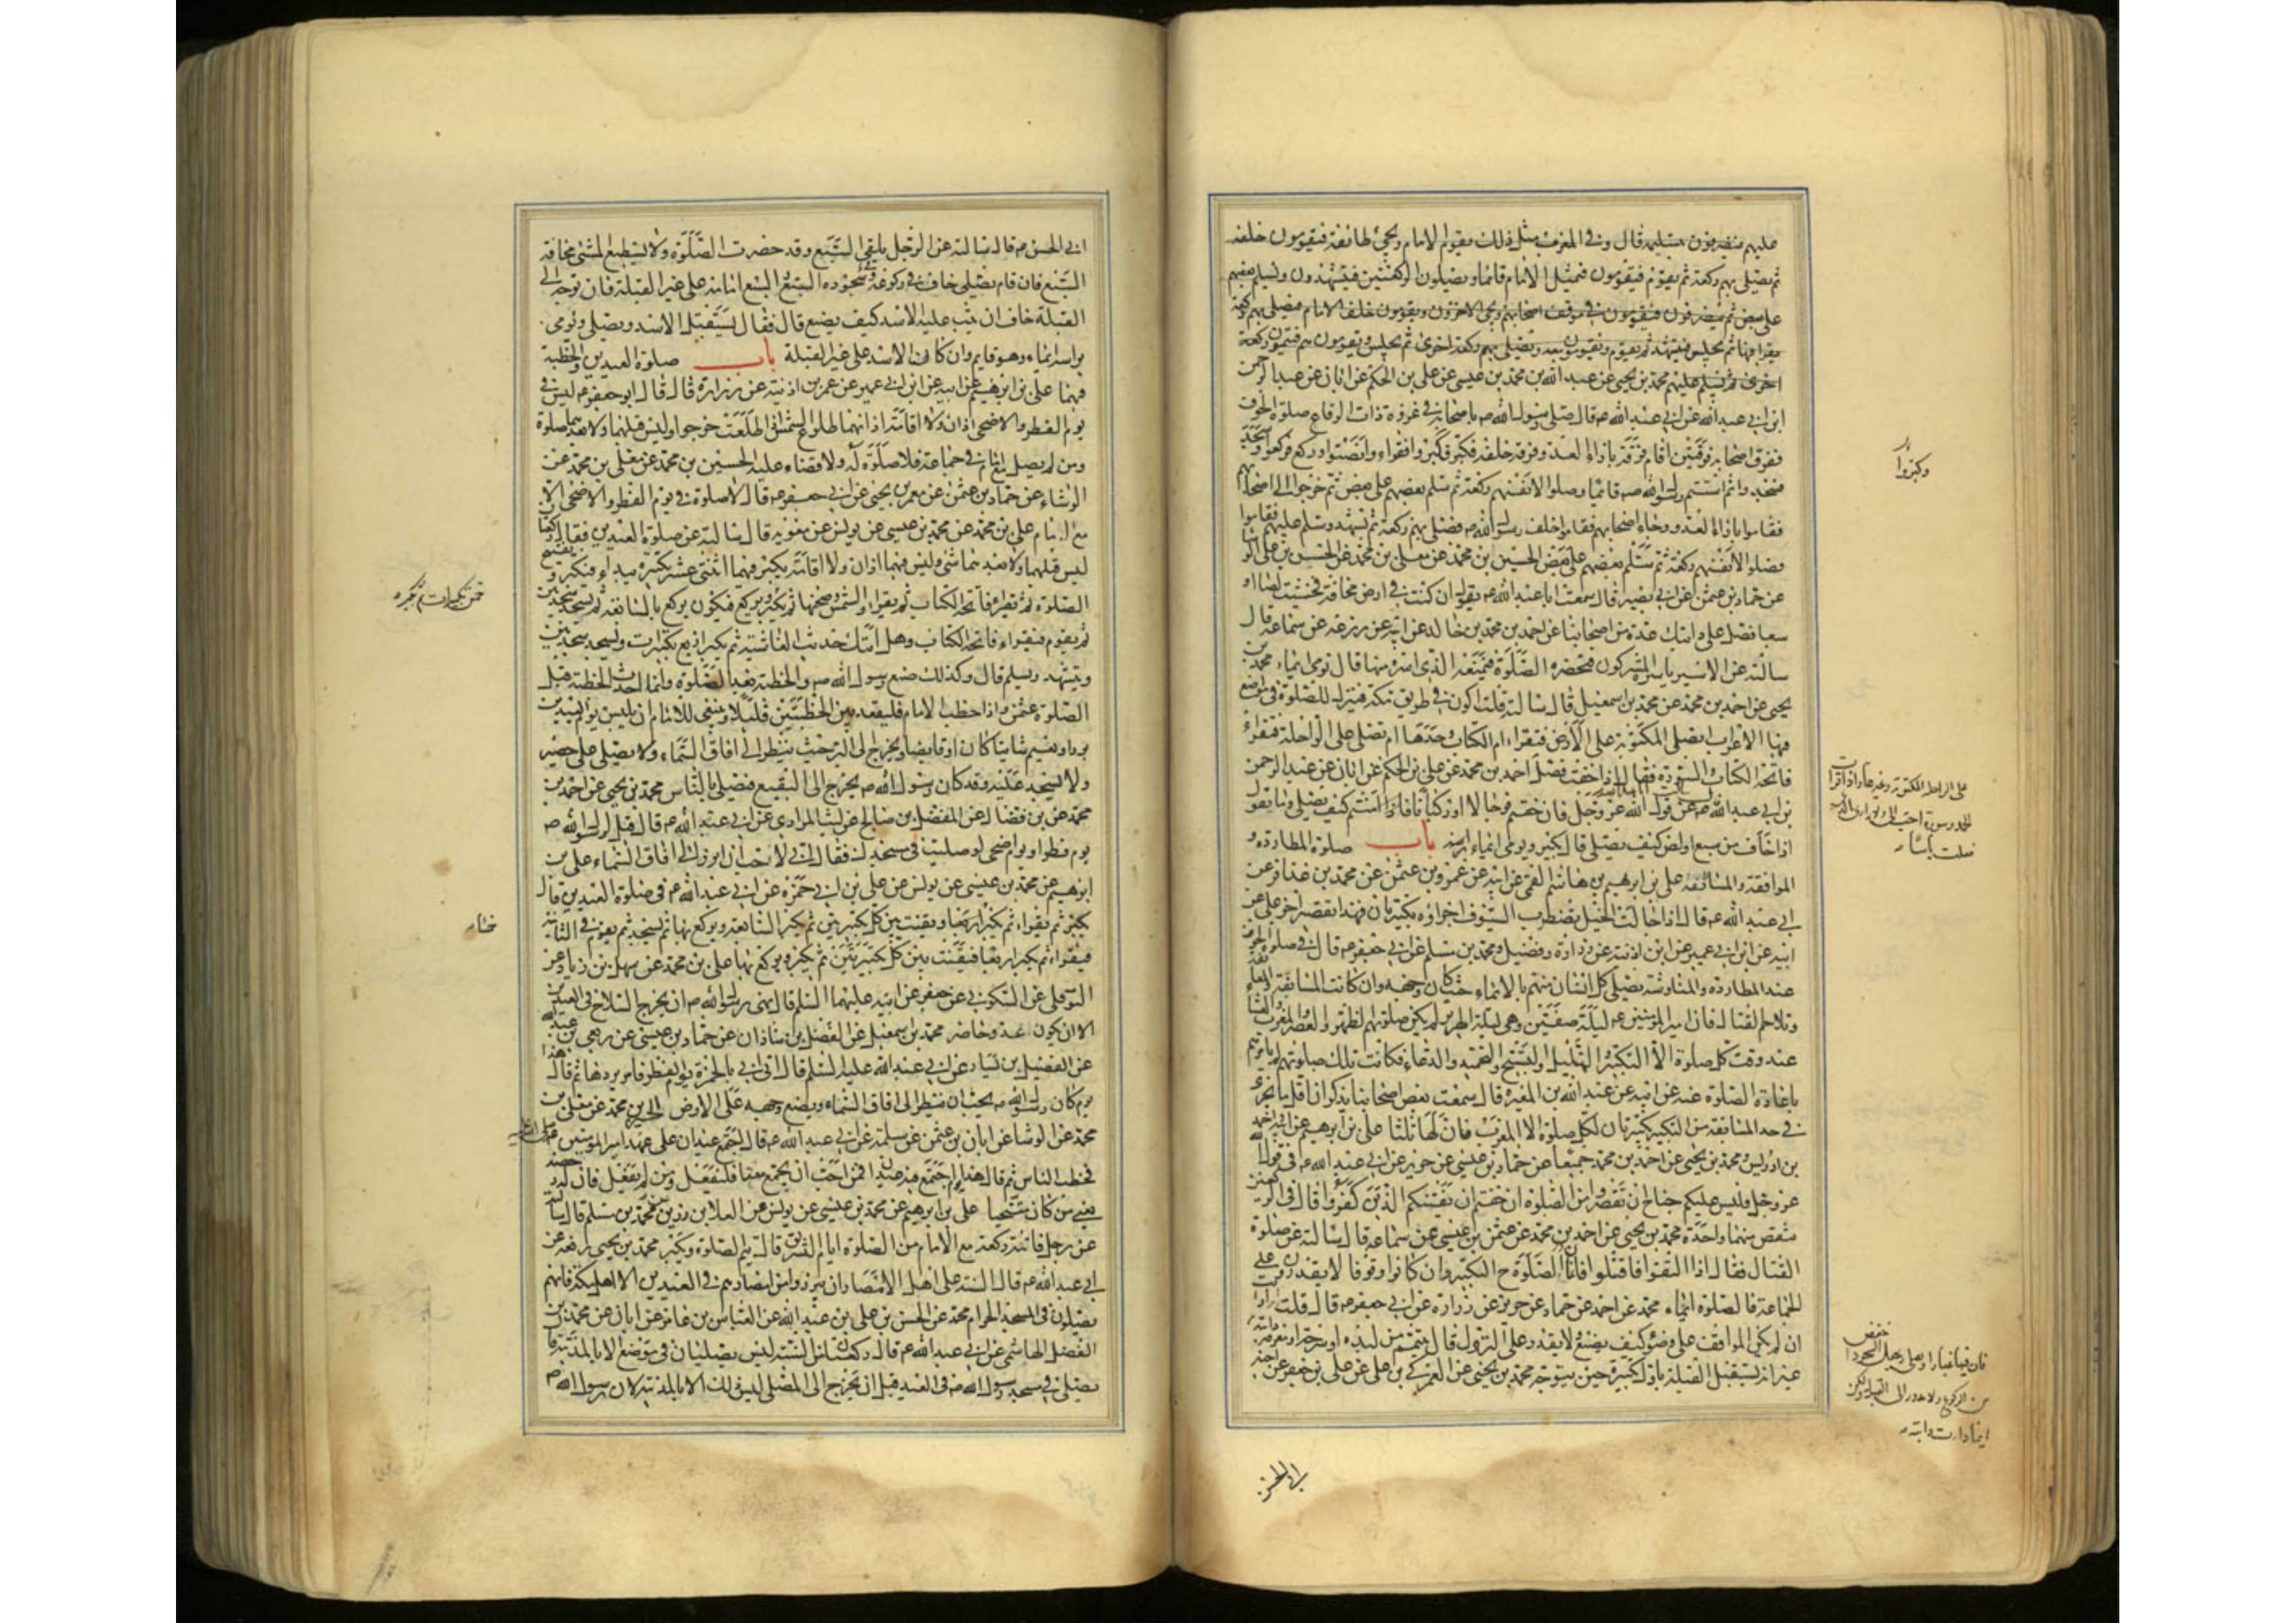 عليهم فينصرفون بتسليمه قال وفي المغرب مثل ذلك يقوم الامام ويجئ طائفة فيقومون خلفه
ثم يصلي بهم ركعة ثم يقوم فيقومون فيمثل الامام قائما ويصلون الركعتين فيتشهدون ويسلم بعضهم
على بعض ثم ينصرفون فيقومون في موقف اصحابهم ويجئ الاخرون ويقومون خلف الامام فيصلي بهم ركعة
يقرا فيها ثم يجلس فيتشهد ثم يقوم ويقومون معه ويصلي بهم ركعة اخرى ثم يجلس ويقومون هم فيتمون ركعة
اخرى ثم يسلم عليهم محمد بن يحيى عن عبد الله بن محمد بن عيسى عن علي بن الحكم عن ابان عن عبد الرحمن
ابن ابي عبد الله عن ابي عبد الله ع قال صلى رسول الله ص باصحابه في غزوة ذات الرقاع صلوة الخوف
ففرق اصحابه فرقتين اقام فرقة بازاء العدو وفرقة خلفه فكبر فكبروا فقراء وانصتوا وركع فركعوا وسجد
فسجدوا ثم استتم رسول الله ص قائما وصلوا لانفسهم ركعة ثم سلم بعضهم على بعض ثم خرجوا الى اصحابهم
فقاموا بازاء العدو وجاء اصحابهم فقاموا خلف رسول الله ص فصلى بهم ركعة ثم تشهد وسلم عليهم فقاموا
فصلوا لانفسهم ركعة ثم سلم بعضهم على بعض الحسين بن محمد عن معلى بن محمد عن الحسن بن علي الوشا
عن حماد بن عثمن عن ابي بصير قال سمعت ابا عبد الله ع يقول ان كنت في ارض مخافة فخشيت لصا او
سبعا فصل على دابتك عدة من اصحابنا عن احمد بن محمد بن خالد عن ابيه عن زرعة عن سماعة قال
سالته عن الاسير ياسره المشركون فتحضره الصلوة فيمنعه الذي اسره منها قال يومي ايماء محمد بن
يحيى عن احمد بن محمد عن محمد بن اسمعيل قال سالته قلت اكون في طريق مكة فننزل للصلوة في مواضع
فيها الاعراب ايصلي المكتوبة على الارض فيقراء ام الكتاب وحدها ام تصلي على الراحلة فيقراء
فاتحة الكتاب والسورة فقال اذا خفت فصل احمد بن محمد عن علي بن الحكم عن ابان عن عبد الرحمن
بن ابي عبد الله عن قول الله عز وجل فان خفتم فرجالا او ركبانا كيف يصلي وما يقول
اذا خاف من سبع او لص كيف يصلي قال يكبر ويومي ايماء براسه باب صلوة المطاردة و
المواقفة والمسايفة علي بن ابرهيم بن هاشم القمي عن ابيه عن عمرو بن عثمن عن محمد بن عذافر عن
ابي عبد الله ع قال اذا جالت الخيل يضطرب السيوف اجزاه تكبيرتان فهذا تقصير اخر علي عن
ابيه عن ابن ابي عمير عن ابن اذينة عن زرارة وفضيل ومحمد بن مسلم عن ابي جعفر ع قال في صلوة الخوف
عند المطاردة والمناوشة يصلي كل انسان منهم بالايماء حيث كان وجهه وان كانت المسايفة
وتلاحم القتال فان امير المؤمنين ع ليلة صفين وهي ليلة الهرير لم يكن صلوتهم الظهر والعصر والمغرب والعشا
عند وقت كل صلوة الا التكبير والتهليل والتسبيح والتحميد والدعاء فكانت تلك صلوتهم لم يامرهم
باعادة الصلوة عنه عن ابيه عن عبد الله بن المغيرة قال سمعت بعض اصحابنا يذكر ان اقل ما يجزئ
في حد المسايفة من التكبير تكبيرتان لكل صلوة الا المغرب فان لها ثلثا علي بن ابرهيم عن ابيه احمد
بن ادريس ومحمد بن يحيى عن احمد بن محمد جميعا عن حماد بن عيسى عن حريز عن ابي عبد الله ع في قول الله
عز وجل فليس عليكم جناح ان تقصروا من الصلوة ان خفتم ان يفتنكم الذين كفروا قال في الركعتين
تنقص منهما واحدة محمد بن يحيى عن احمد بن محمد عن عثمن بن عيسى عن سماعة قال سالته عن صلوة
القتال فقال اذا التقوا فاقتتلوا فانما الصلوة ح التكبير وان كانوا وقوفا لا يقدرون على
الجماعة فالصلوة ايماء محمد عن احمد عن حماد عن حريز عن زرارة عن ابي جعفر ع قال قلت ارايت
ان لم يكن المواقف على وضو كيف يصنع ولا يقدر على النزول قال يتيمم من لبده او سرجه او معرفة دابته
غير انه يستقبل القبلة باول تكبيرة حين يتوجه محمد بن يحيى عن العمركي بن علي عن علي بن جعفر عن اخيه
ابي الحسن
وكبروا
ابي الحسن ع قال سالته عن الرجل يلقى السبع وقد حضرت الصلوة ولا يستطيع المشي مخافة
السبع فان قام يصلي خاف في ركوعه وسجوده السبع والسبع امامه على غير القبلة فان توجه الى
القبلة خاف ان يثب عليه الاسد كيف يصنع قال فقال يستقبل الاسد ويصلي ويومي
براسه ايماء وهو قايم وان كان الاسد على غير القبلة باب صلوة العيدين والخطبة
فيهما علي بن ابرهيم عن ابيه عن ابن ابي عمير عن عمر بن اذينة عن زرارة قال قال ابو جعفر ع ليس في
يوم الفطر والاضحى اذان ولا اقامة اذانهما طلوع الشمس اذا طلعت خرجوا وليس قبلهما ولا بعدهما صلوة
ومن لم يصل مع امام في جماعة فلا صلوة له ولا قضاء عليه الحسين بن محمد عن معلى بن محمد عن
الوشاء عن حماد بن عثمن عن معمر بن يحيى عن ابي جعفر ع قال لا صلوة في يوم الفطر والاضحى الا
مع امام علي بن محمد عن محمد بن عيسى عن يونس عن معويه قال سالته عن صلوة العيدين فقال ركعتان
ليس قبلهما ولا بعدهما شئ وليس فيهما اذان ولا اقامة يكبر فيهما اثنتي عشر تكبيرة يبداء فيكبر ويفتتح
الصلوة ثم يقراء فاتحة الكتاب ثم يقراء والشمس وضحيها ثم يكبر ويركع فيكون يركع بالسابعة ثم يسجد سجدتين
ثم يقوم فيقراء فاتحة الكتاب وهل اتيك حديث الغاشية ثم يكبر اربع تكبيرات ويسجد سجدتين
ويتشهد ويسلم قال وكذلك صنع رسول الله ص والخطبة بعد الصلوة وانما احدث الخطبة قبل
الصلوة عثمن واذا خطب الامام فليقعد بين الخطبتين قليلا وينبغي للامام ان يلبس يوم العيدين
بردا ويعتم شاتيا كان او قايضا ويخرج الى البر حيث ينظر الى افاق السماء ولا يصلي على حصير
ولا يسجد عليه وقد كان رسول الله ص يخرج الى البقيع فيصلي بالناس محمد بن يحيى عن احمد بن
محمد عن بن فضال عن المفضل بن صالح عن ليث المرادي عن ابي عبد الله ع قال قيل لرسول الله ص
يوم فطر او يوم اضحى لو صليت في مسجدك فقال اني لاحب ان ابرز الى افاق السماء علي بن
ابرهيم عن محمد بن عيسى عن يونس عن علي بن ابي حمزة عن ابي عبد الله ع في صلوة العيدين قال
يكبر ثم يقراء ثم يكبر خمسا ويقنت بين كل تكبيرتين ثم يكبر السابعة ويركع بها ثم يسجد ثم يقوم في الثانية
فيقراء ثم يكبر اربعا فيقنت بين كل تكبيرتين ثم يكبر ويركع بها علي بن محمد عن سهل بن زياد عن
النوفلي عن السكوني عن جعفر عن ابيه عليهما السلم قال نهى رسول الله ص ان يخرج السلاح في العيدين
الا ان يكون عدو حاضر محمد بن اسمعيل عن الفضل بن شاذان عن حماد بن عيسى عن ربعي بن عبد الله
عن الفضيل بن يسار عن ابي عبد الله عليه السلم قال اتي ابي بالخمرة يوم الفطر فامر بردها ثم قال هذا
يوم كان رسول الله ص يحب ان ينظر الى افاق السماء ويضع وجهه على الارض الحسين بن محمد عن معلى بن
محمد عن الوشا عن ابان بن عثمن عن سلمة عن ابي عبد الله ع قال اجتمع عيدان على عهد امير المؤمنين
فخطب الناس ثم قال هذا يوم اجتمع فيه عيدان فمن احب ان يجمع معنا فليفعل ومن لم يفعل فان له رخصة
يعني من كان متنحيا علي بن ابرهيم عن محمد بن عيسى عن يونس عن العلا بن رزين عن محمد بن مسلم قال سالته
عن رجل فاتته ركعة مع الامام من الصلوة ايام التشريق قال يتم الصلوة ويكبر محمد بن يحيى رفعه عن
ابي عبد الله ع قال السنة على اهل الامصار ان يبرزوا من امصارهم في العيدين الا اهل مكة فانهم
يصلون في المسجد الحرام محمد عن الحسن بن علي بن عبد الله عن العباس بن عامر عن ابان عن محمد بن
الفضل الهاشمي عن ابي عبد الله ع قال ركعتان من السنة ليس يصليان في موضع الا بالمدينة قال
يصلي في مسجد رسول الله ص في العيد قبل ان يخرج الى المصلى ليس ذلك الا بالمدينة لان رسول الله ص